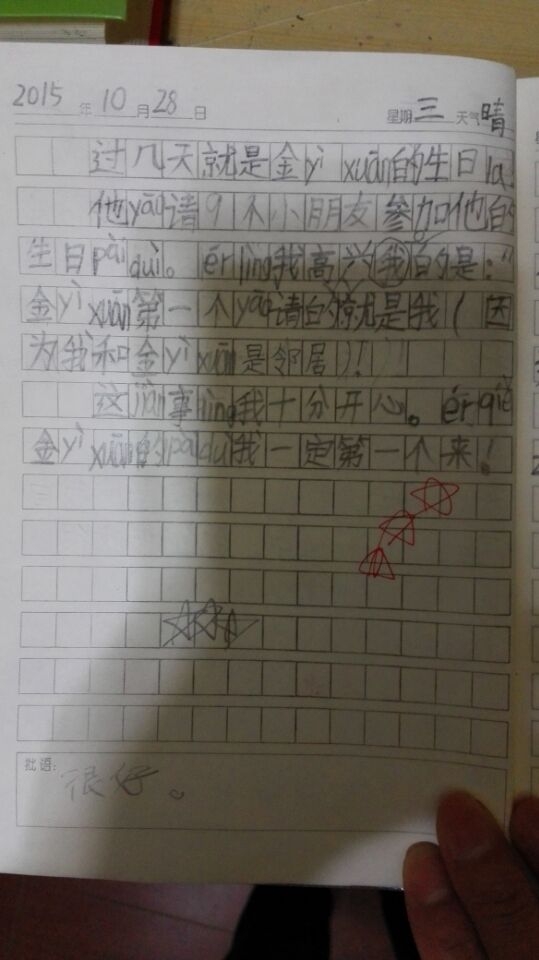 2015 年 10 月 28 日 星期 三 天气 晴
过几天就是金yì xuān的生日la。
他yāo请9个小朋友参加他的
生日pài duì。ér lìng我高兴的是:"
金yì xuān第一个yāo请的就是我(因
为我和金yì xuān是邻居)!
这jiàn事lìng我十分开心。ér qiě
金yì xuān的pài duì我一定第一个来!
批语:
很好。